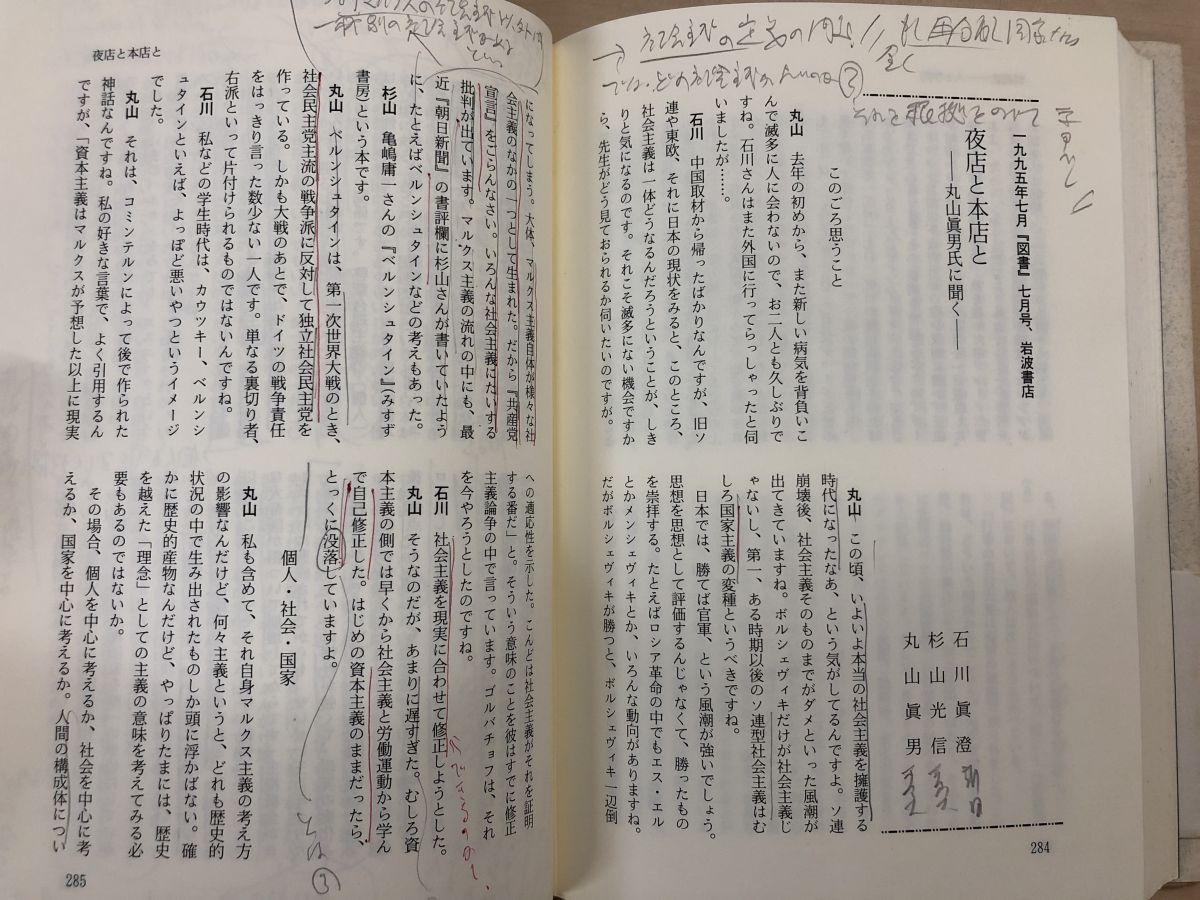 一九九五年七月『図書』七月号、岩波書店
夜店と本店と
――丸山眞男氏に聞く――
石川眞澄
杉山光信
丸山眞男
このごろ思うこと
丸山　去年の初めから、また新しい病気を背負いこ
んで滅多に人に会わないので、お二人とも久しぶりで
すね。石川さんはまた外国に行ってらっしゃったと伺
いましたが……。
石川　中国取材から帰ったばかりなんですが、旧ソ
連や東欧、それに日本の現状をみると、このところ、
社会主義は一体どうなるんだろうということが、しき
りと気になるのです。それこそ滅多にない機会ですか
ら、先生がどう見ておられるか伺いたいのですが。
丸山　この頃、いよいよ本当の社会主義を擁護する
時代になったなあ、という気がしてるんですよ。ソ連
崩壊後、社会主義そのものまでがダメといった風潮が
出てきていますね。ボルシェヴィキだけが社会主義じ
ゃないし、第一、ある時期以後のソ連型社会主義はむ
しろ国家主義の変種というべきですね。
日本では、勝てば官軍、という風潮が強いでしょう。
思想を思想として評価するんじゃなくて、勝ったもの
を崇拝する。たとえばロシア革命の中でもエス・エル
とかメンシェヴィキとか、いろんな動向がありますね。
だがボルシェヴィキが勝つと、ボルシェヴィキ一辺倒
284
夜店と本店と
になってしまう。大体、マルクス主義自体が様々な社
会主義のなかの一つとして生まれた。だから『共産党
宣言』をごらんなさい。いろんな社会主義にたいする
批判が出ています。マルクス主義の流れの中にも、最
近『朝日新聞』の書評欄に杉山さんが書いていたよう
に、たとえばベルンシュタインなどの考えもあった。
杉山　亀嶋庸一さんの『ベルンシュタイン』（みすず
書房）という本です。
丸山　ベルンシュタインは、第一次世界大戦のとき、
社会民主党主流の戦争派に反対して独立社会民主党を
作っている。しかも大戦のあとで、ドイツの戦争責任
をはっきり言った数少ない一人です。単なる裏切り者、
右派といって片付けられるものではないんですね。
石川　私などの学生時代は、カウツキー、ベルンシ
ュタインといえば、よっぽど悪いやつというイメージ
でした。
丸山　それは、コミンテルンによって後で作られた
神話なんですね。私の好きな言葉で、よく引用するん
ですが、「資本主義はマルクスが予想した以上に現実
への適応性を示した。こんどは社会主義がそれを証明
する番だ」と。そういう意味のことを彼はすでに修正
主義論争の中で言っています。ゴルバチョフは、それ
を今やろうとしたのですね。
石川　社会主義を現実に合わせて修正しようとした。
丸山　そうなのだが、あまりに遅すぎた。むしろ資
本主義の側では早くから社会主義と労働運動から学ん
で自己修正した。はじめの資本主義のままだったら、
とっくに没落していますよ。
個人・社会・国家
丸山　私も含めて、それ自身マルクス主義の考え方
の影響なんだけど、何々主義というと、どれも歴史的
状況の中で生み出されたものしか頭に浮かばない。確
かに歴史的産物なんだけど、やっぱりたまには、歴史
を越えた「理念」としての主義の意味を考えてみる必
要もあるのではないか。
その場合、個人を中心に考えるか、社会を中心に考
えるか、国家を中心に考えるか。人間の構成体につい
285